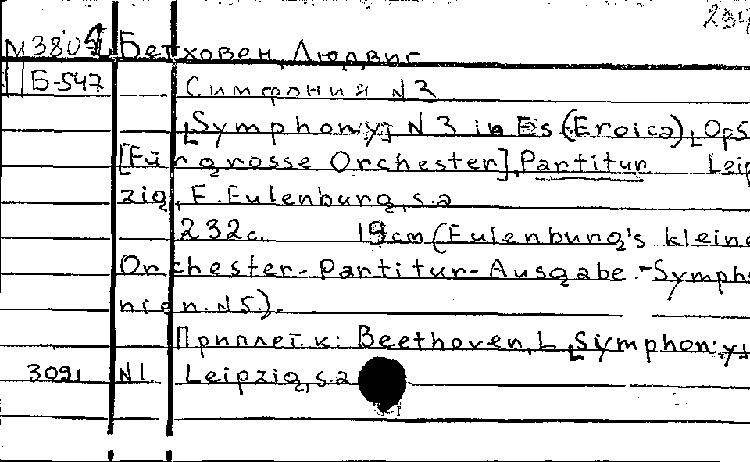 234
М3805 Бетховен, Людвиг
Б-547 Симфоний N3
[Symphony] N3 in Es (Eroica), Op5
[Für grosse Orchester]. Partitur Leip
zig, E. Eulenburg, s.a
232с. 19cm (Eulenburg's kleine
Orchester-Partitur-Ausgabe.-Sympho
nien. N5).
Приплет. к: Beethoven, L. [Symphony]
3091 N1 Leipzig, s.a